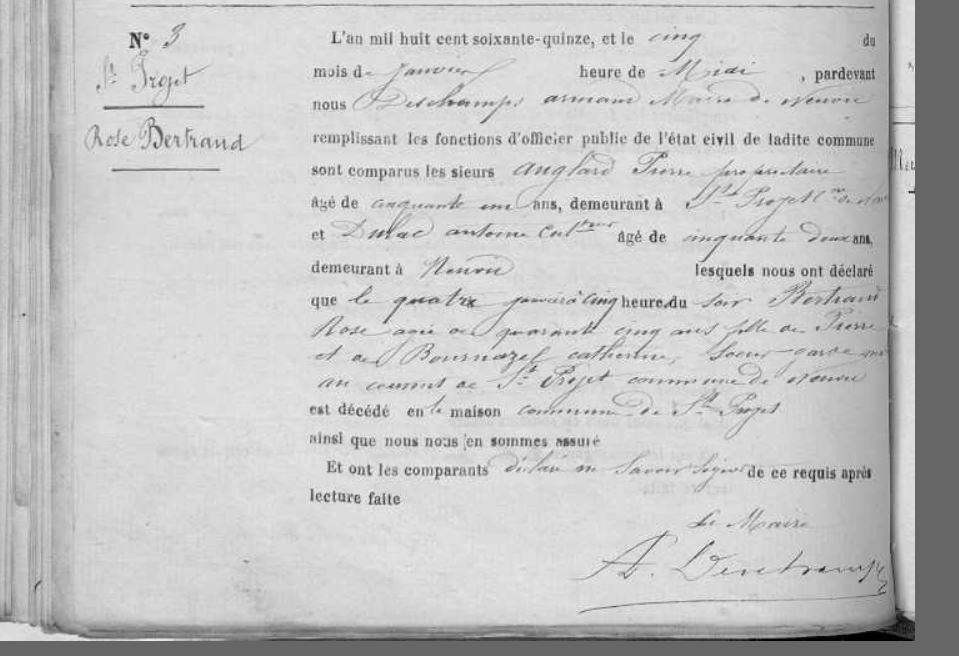 N° 3
St Projet
Rose Bertrand
L'an mil huit cent soixante-quinze, et le cinq du
mois de Janvier heure de Midi , pardevant
nous Deschamps armand Maire de Neuvic
remplissant les fonctions d'officier public de l'état civil de ladite commune
sont comparus les sieurs Anglard Pierre propriétaire
âgé de cinquante un ans, demeurant à St Projet Cne de
et Dulac antoine Cultr âgé de cinquante deux ans,
demeurant à Neuvic lesquels nous ont déclaré
que le quatre janvier à cinq heure du soir Bertrand
Rose agée de quarante cinq ans fille de Pierre
et de Bournazel catherine, Soeur garde
au couvent de St Projet commune de Neuvic
est décédé en le maison commune de St Projet
ainsi que nous nous en sommes assuré
Et ont les comparants déclaré ne Savoir Signer de ce requis après
lecture faite
Le Maire
A. Deschamps